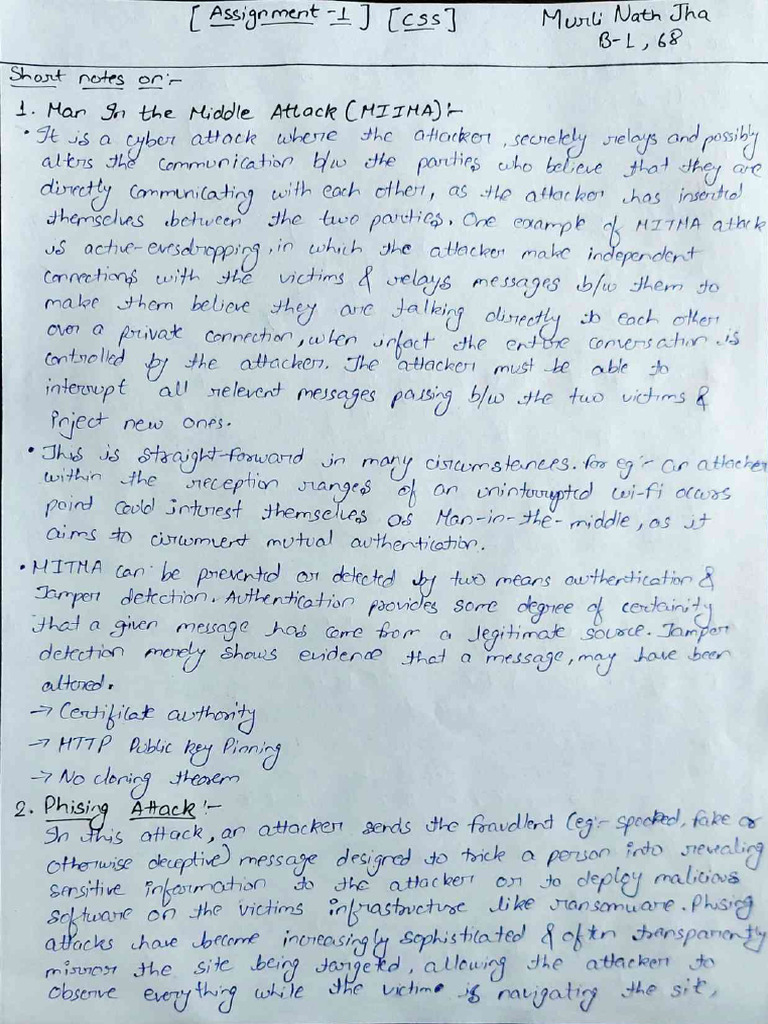 [Assignment-1] [CSS] Murli Nath Jha
B-1, 68
Short notes on:-
1. Man In the Middle Attack (MIIMA):-
• It is a cyber attack where the attacker, secretely relays and possibly
alters the communication b/w the parties who believe that they are
directly communicating with each other, as the attacker has inserted
themselves between the two parties. One example of MITMA attack
is active-evesdropping, in which the attacker make independent
connections with the victims & relays messages b/w them to
make them believe they are talking directly to each other
over a private connection, when infact the entire conversation is
controlled by the attacker. The attacker must be able to
interrupt all relevent messages passing b/w the two victims &
inject new ones.
• This is straight-forward in many circumstances. for eg:- an attacker
within the reception ranges of an uninterrupted wi-fi accurs
point could interest themselves as Man-in-the-middle, as it
aims to circumvent mutual authentication.
• MITMA can be prevented or detected by two means authentication &
Tamper detection. Authentication provides some degree of certainity
that a given message has come from a legitimate source. Tamper
detection merely shows evidence that a message, may have been
altered.
→ Certificate authority
→ HTTP Public Key Pinning
→ No cloning theorem
2. Phising Attack:-
In this attack, an attacker sends the fraudlent (eg:- spooked, fake or
otherwise deceptive) message designed to trick a person into revealing
sensitive information to the attacker or to deploy malicious
software on the victims infrastructure like ransomware. Phising
attacks have become increasingly sophisticated & often transparently
mirror the site being targeted, allowing the attacker to
observe everything while the victim is navigating the site,